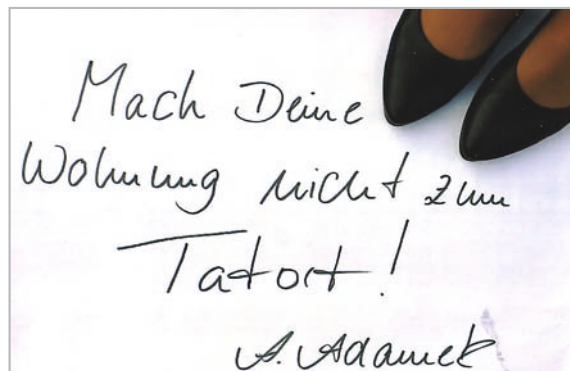 Mach Deine
Wohnung nicht zum
Tatort!
A. Adamek